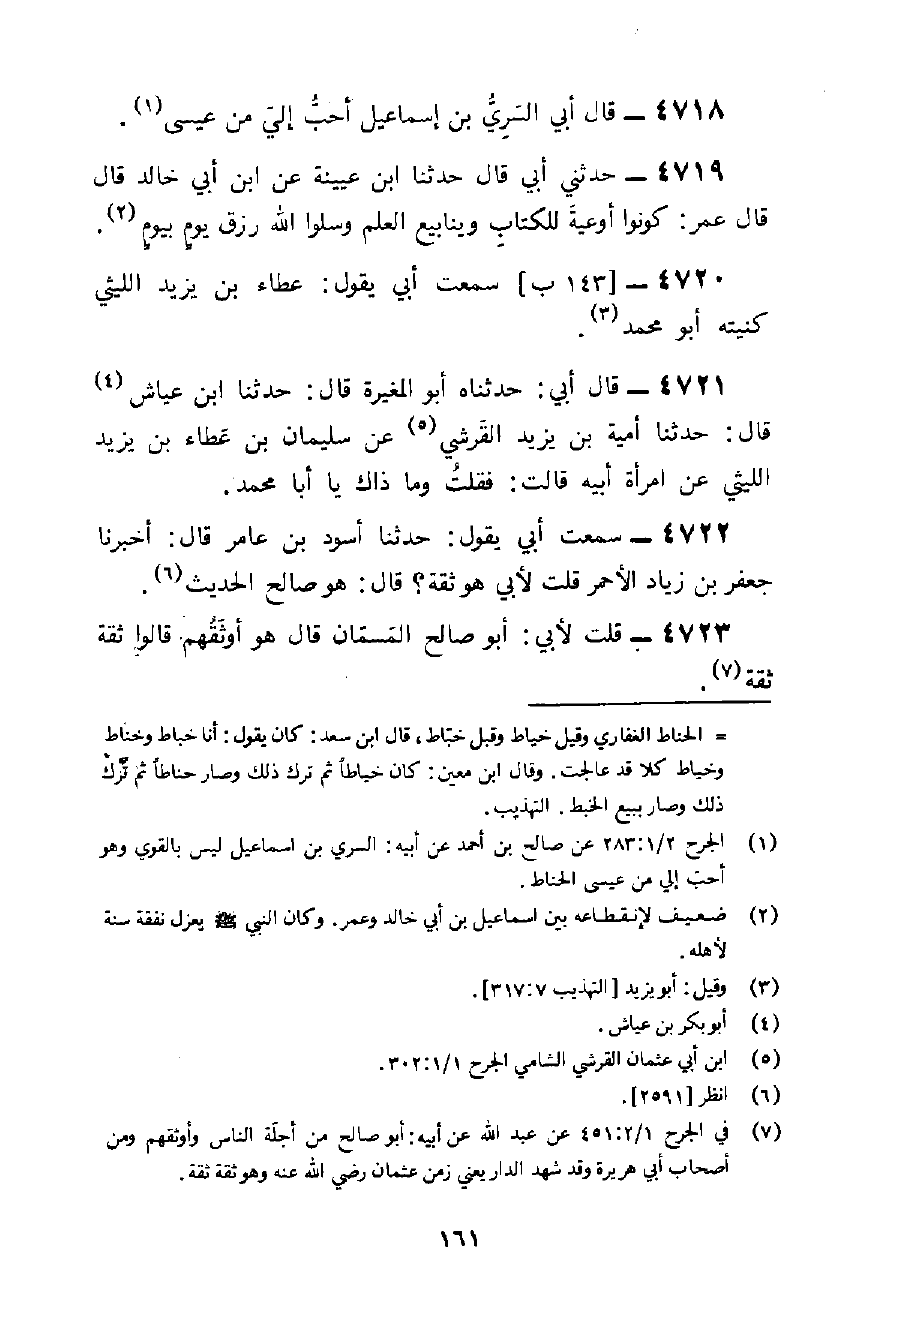 ٤٧١٨ ــ قال أبي السَرِيُّ بن إسماعيل أحبُّ إليّ من عيسى(١).
٤٧١٩ ــ حدثني أبي قال حدثنا ابن عيينة عن ابن أبي خالد قال
قال عمر: كونوا أوعيةً للكتابِ وينابيع العلم وسلوا الله رزق يومٍ بيومٍ(٢).
٤٧٢٠ ــ [١٤٣ ب] سمعت أبي يقول: عطاء بن يزيد الليثي
كنيته أبو محمد(٣).
٤٧٢١ ــ قال أبي: حدثناه أبو المغيرة قال: حدثنا ابن عياش(٤)
قال: حدثنا أمية بن يزيد القَرشي(٥) عن سليمان بن عَطاء بن يزيد
الليثي عن امرأة أبيه قالت: فقلتُ وما ذاك يا أبا محمد.
٤٧٢٢ ــ سمعت أبي يقول: حدثنا أسود بن عامر قال: أخبرنا
جعفر بن زياد الأحمر قلت لأبي هو ثقة؟ قال: هو صالح الحديث(٦).
٤٧٢٣ ــ قلت لأبي: أبو صالح السَمّان قال هو أوثَقُهم قالوا ثقة
ثقة(٧).
= الحناط الغفاري وقيل خياط وقيل خبّاط، قال ابن سعد: كان يقول: أنا خباط وحناط
وخياط كلا قد عالجت. وقال ابن معين: كان خياطاً ثم ترك ذلك وصار حناطاً ثم تَرَك
ذلك وصار يبيع الخبط. التهذيب.
(١) الجرح ٢/١:٢٨٣ عن صالح بن أحمد عن أبيه: السري بن اسماعيل ليس بالقوي وهو
أحبّ إلي من عيسى الحناط.
(٢) ضعيف لإنقطاعه بين اسماعيل بن أبي خالد وعمر. وكان النبي ﷺ يعزل نفقة سنة
لأهله.
(٣) وقيل: أبو يزيد [التهذيب ٧:٣١٧].
(٤) أبو بكر بن عياش.
(٥) ابن أبي عثمان القرشي الشامي الجرح ١/١:٣٠٢.
(٦) انظر [٢٥٩١].
(٧) في الجرح ١/٢:٤٥١ عن عبد الله عن أبيه: أبو صالح من أجلّة الناس وأوثقهم ومن
أصحاب أبي هريرة وقد شهد الدار يعني زمن عثمان رضي الله عنه وهو ثقة ثقة.
١٦١